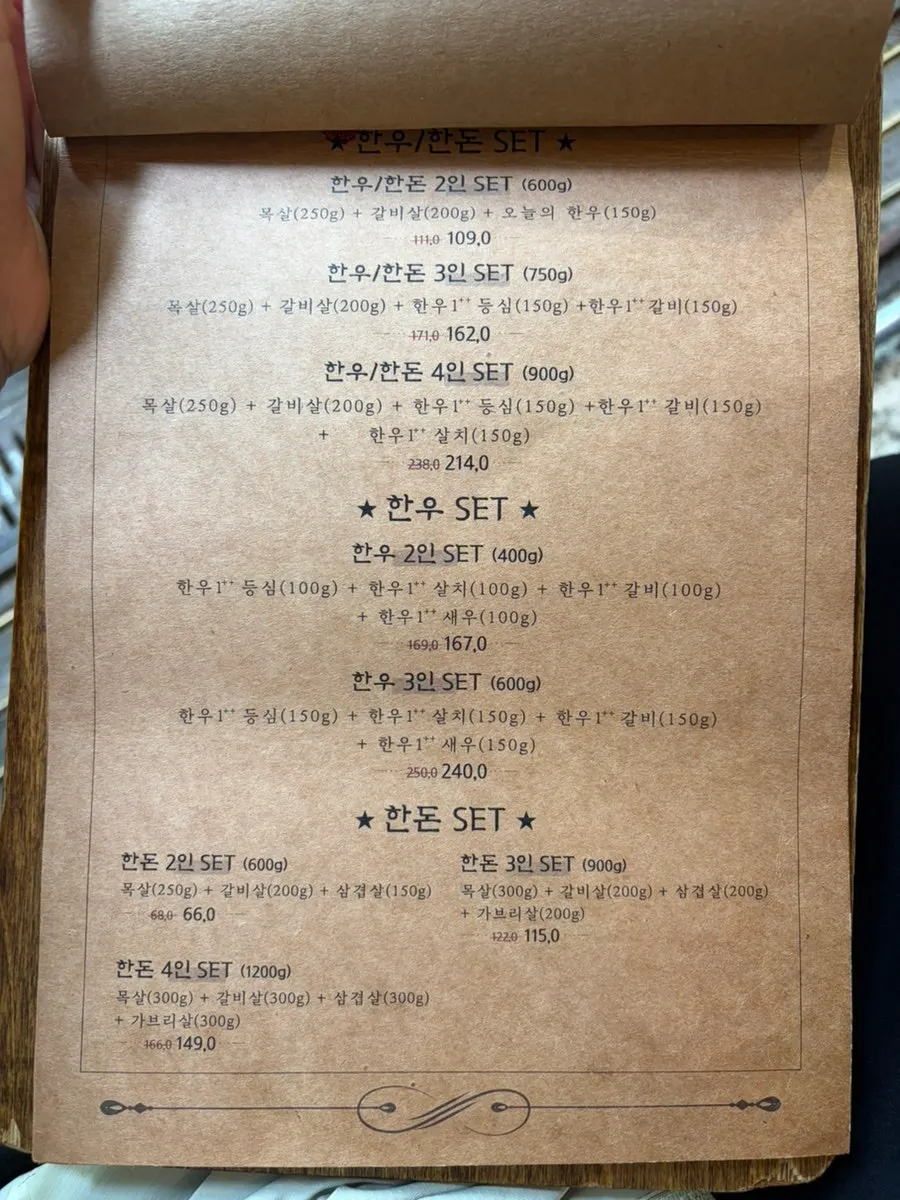 ★ 한우/한돈 SET ★
한우/한돈 2인 SET (600g)
목살(250g) + 갈비살(200g) + 오늘의 한우(150g)
111,0 109,0
한우/한돈 3인 SET (750g)
목살(250g) + 갈비살(200g) + 한우1++ 등심(150g) +한우1++ 갈비(150g)
171,0 162,0
한우/한돈 4인 SET (900g)
목살(250g) + 갈비살(200g) + 한우1++ 등심(150g) +한우1++ 갈비(150g)
+ 한우1++ 살치(150g)
238,0 214,0
★ 한우 SET ★
한우 2인 SET (400g)
한우1++ 등심(100g) + 한우1++ 살치(100g) + 한우1++ 갈비(100g)
+ 한우1++ 새우(100g)
169,0 167,0
한우 3인 SET (600g)
한우1++ 등심(150g) + 한우1++ 살치(150g) + 한우1++ 갈비(150g)
+ 한우1++ 새우(150g)
250,0 240,0
★ 한돈 SET ★
한돈 2인 SET (600g)
목살(250g) + 갈비살(200g) + 삼겹살(150g)
68,0 66,0
한돈 3인 SET (900g)
목살(300g) + 갈비살(200g) + 삼겹살(200g)
+ 가브리살(200g)
122,0 115,0
한돈 4인 SET (1200g)
목살(300g) + 갈비살(300g) + 삼겹살(300g)
+ 가브리살(300g)
166,0 149,0